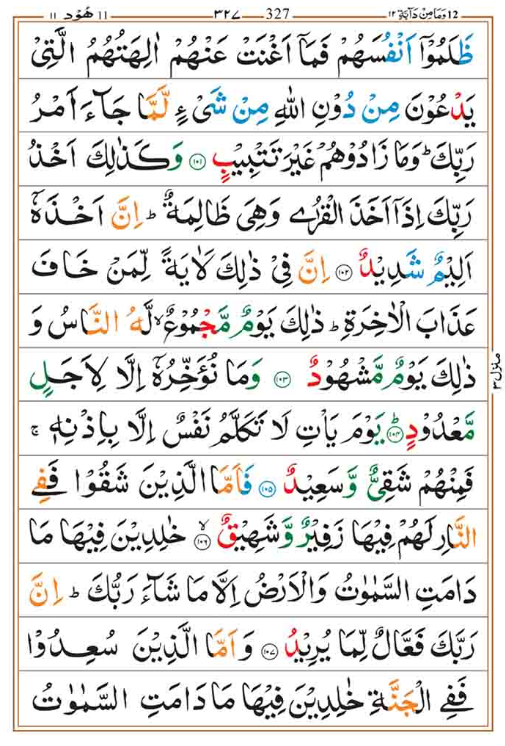 12 وما من دآبة ١٢ 327 ٣٢٧ هُوْد ١١ 11
ظَلَمُوْۤا اَنْفُسَهُمْ فَمَاۤ اَغْنَتْ عَنْهُمْ اٰلِهَتُهُمُ الَّتِیْ
یَدْعُوْنَ مِنْ دُوْنِ اللّٰهِ مِنْ شَیْءٍ لَّمَّا جَآءَ اَمْرُ
رَبِّكَ ؕ وَمَا زَادُوْهُمْ غَیْرَ تَتْبِیْبٍ ﴿۱۰۱﴾ وَكَذٰلِكَ اَخْذُ
رَبِّكَ اِذَاۤ اَخَذَ الْقُرٰی وَهِیَ ظَالِمَةٌ ؕ اِنَّ اَخْذَهٗۤ
اَلِیْمٌ شَدِیْدٌ ﴿۱۰۲﴾ اِنَّ فِیْ ذٰلِكَ لَاٰیَةً لِّمَنْ خَافَ
عَذَابَ الْاٰخِرَةِ ؕ ذٰلِكَ یَوْمٌ مَّجْمُوْعٌ ۙ لَّهُ النَّاسُ وَ
ذٰلِكَ یَوْمٌ مَّشْهُوْدٌ ﴿۱۰۳﴾ وَمَا نُؤَخِّرُهٗۤ اِلَّا لِاَجَلٍ
مَّعْدُوْدٍ ﴿۱۰۴﴾ؕ یَوْمَ یَاْتِ لَا تَكَلَّمُ نَفْسٌ اِلَّا بِاِذْنِهٖ ۚ
فَمِنْهُمْ شَقِیٌّ وَّسَعِیْدٌ ﴿۱۰۵﴾ فَاَمَّا الَّذِیْنَ شَقُوْا فَفِی
النَّارِ لَهُمْ فِیْهَا زَفِیْرٌ وَّشَهِیْقٌ ﴿۱۰۶﴾ۙ خٰلِدِیْنَ فِیْهَا مَا
دَامَتِ السَّمٰوٰتُ وَالْاَرْضُ اِلَّا مَا شَآءَ رَبُّكَ ؕ اِنَّ
رَبَّكَ فَعَّالٌ لِّمَا یُرِیْدُ ﴿۱۰۷﴾ وَاَمَّا الَّذِیْنَ سُعِدُوْا
فَفِی الْجَنَّةِ خٰلِدِیْنَ فِیْهَا مَا دَامَتِ السَّمٰوٰتُ
منزل ٣